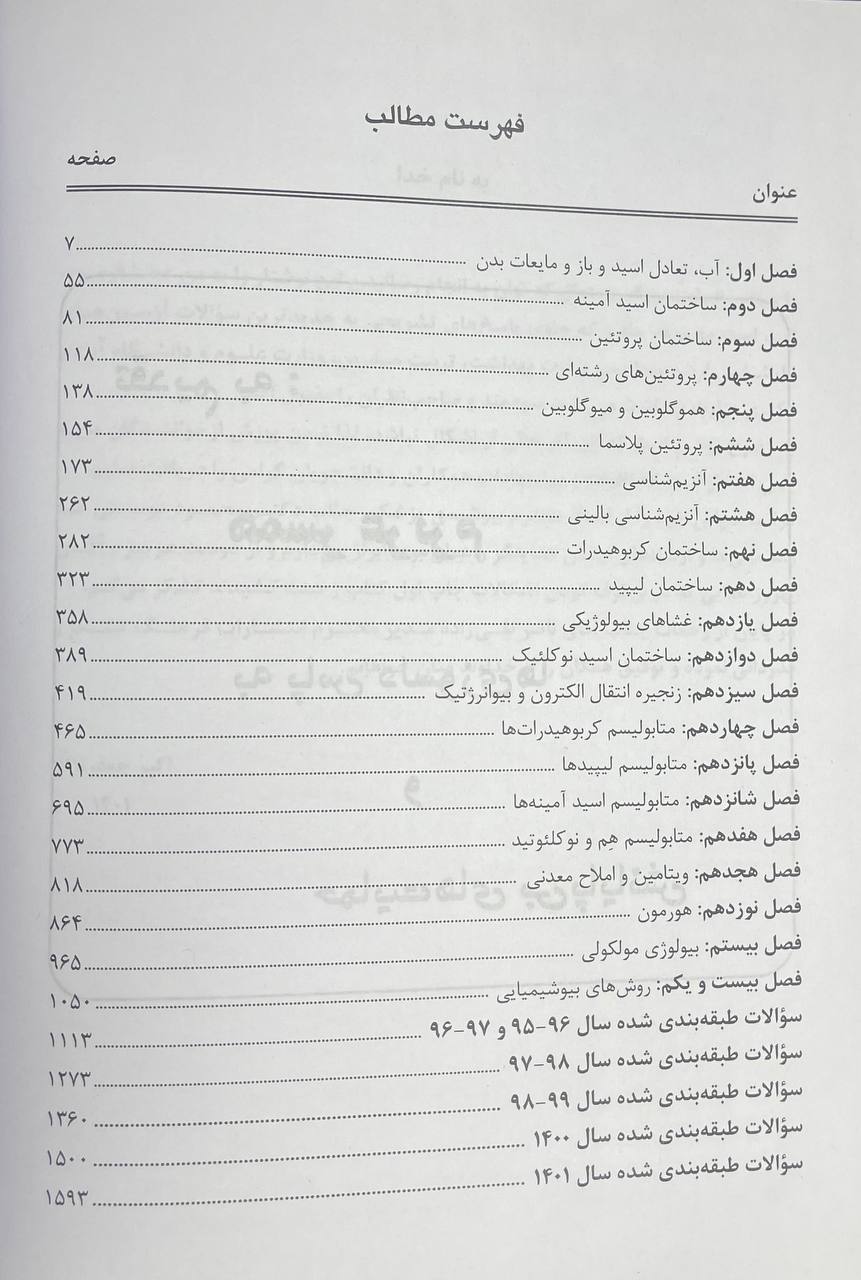 فهرست مطالب
عنوان صفحه
فصل اول: آب، تعادل اسید و باز و مایعات بدن ۷
فصل دوم: ساختمان اسید آمینه ۵۵
فصل سوم: ساختمان پروتئین ۸۱
فصل چهارم: پروتئین‌های رشته‌ای ۱۱۸
فصل پنجم: هموگلوبین و میوگلوبین ۱۳۸
فصل ششم: پروتئین پلاسما ۱۵۴
فصل هفتم: آنزیم‌شناسی ۱۷۳
فصل هشتم: آنزیم‌شناسی بالینی ۲۶۲
فصل نهم: ساختمان کربوهیدرات ۲۸۲
فصل دهم: ساختمان لیپید ۳۲۳
فصل یازدهم: غشاهای بیولوژیکی ۳۵۸
فصل دوازدهم: ساختمان اسید نوکلئیک ۳۸۹
فصل سیزدهم: زنجیره انتقال الکترون و بیوانرژتیک ۴۱۹
فصل چهاردهم: متابولیسم کربوهیدرات‌ها ۴۶۵
فصل پانزدهم: متابولیسم لیپیدها ۵۹۱
فصل شانزدهم: متابولیسم اسید آمینه‌ها ۶۹۵
فصل هفدهم: متابولیسم هِم و نوکلئوتید ۷۷۳
فصل هجدهم: ویتامین و املاح معدنی ۸۱۸
فصل نوزدهم: هورمون ۸۶۴
فصل بیستم: بیولوژی مولکولی ۹۶۵
فصل بیست و یکم: روش‌های بیوشیمیایی ۱۰۵۰
سؤالات طبقه‌بندی شده سال ۹۶-۹۵ و ۹۷-۹۶ ۱۱۱۳
سؤالات طبقه‌بندی شده سال ۹۸-۹۷ ۱۲۷۳
سؤالات طبقه‌بندی شده سال ۹۹-۹۸ ۱۳۶۰
سؤالات طبقه‌بندی شده سال ۱۴۰۰ ۱۵۰۰
سؤالات طبقه‌بندی شده سال ۱۴۰۱ ۱۵۹۳